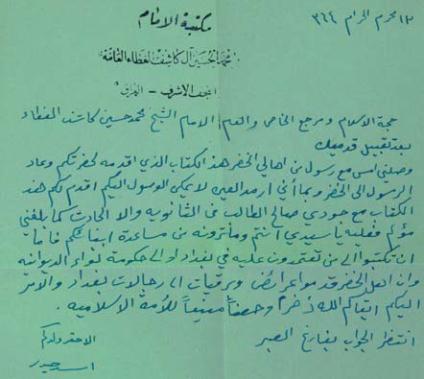 ١٣ محرم الحرام ٣٦٤
مكتبة الامام
محمد الحسين آل كاشف الغطاء العامة
النجف الاشرف - العراق
حجة الاسلام ومرجع الخاص والعام الامام الشيخ محمد حسين كاشف الغطاء
بعد تقبيل
وصلني امس مع رسول من اهالي الخضر هذا الكتاب الذي اقدمه لحضرتكم وعاد
الرسول الى الخضر وبما أني ارمد العين لا يمكن الوصول اليكم اقدم لكم هذا
الكتاب مع جودي صالح الطالب في الثانويه والا الحادث كما بلغني
مؤلم فعليه يا سيدي انتم وما ترونه من مساعدة ابنائكم فاما
ان تكتبوا الى من تعتمدون عليه في بغداد او الى حكومة لواء الديوانه
وان اهل الخضر قدموا عرائض وبرقيات الى رجالات بغداد والامر
اليكم ابقاكم الله ذخراً وحصناً منيعاً للأمة الاسلاميه.
انتظر الجواب بفارغ الصبر
الاحقر ولدكم
اسد حيدر